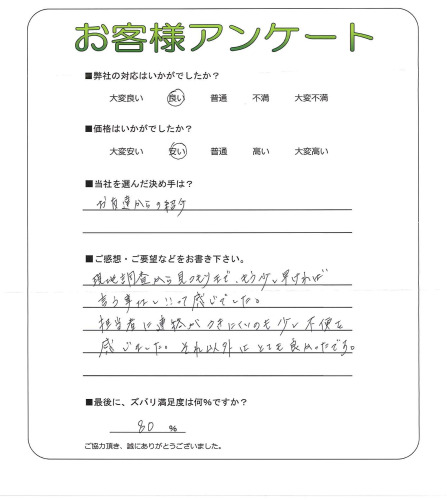 お客様アンケート
■弊社の対応はいかがでしたか?
大変良い 良い 普通 不満 大変不満
■価格はいかがでしたか?
大変安い 安い 普通 高い 大変高い
■当社を選んだ決め手は?
お友達からの紹介
■ご感想・ご要望などをお書き下さい。
現地調査から見つもりまで、もう少し早ければ
言う事なし!!って感じでした。
担当者に連絡がつきにくいのも少し不便を
感じました。それ以外はとても良かったです。
■最後に、ズバリ満足度は何%ですか?
80 %
ご協力頂き、誠にありがとうございました。